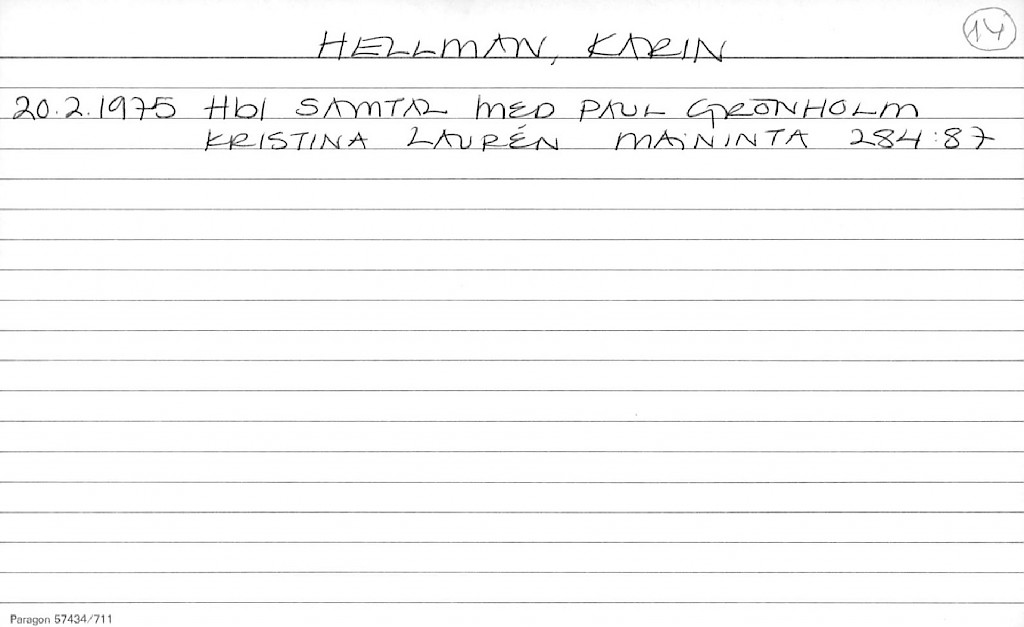 HELLMAN, KARIN
14
20.2.1975 Hbl SAMTAL MED PAUL GRÖNHOLM
KRISTINA LAURÉN MAININTA 284:87
Paragon 57434/711